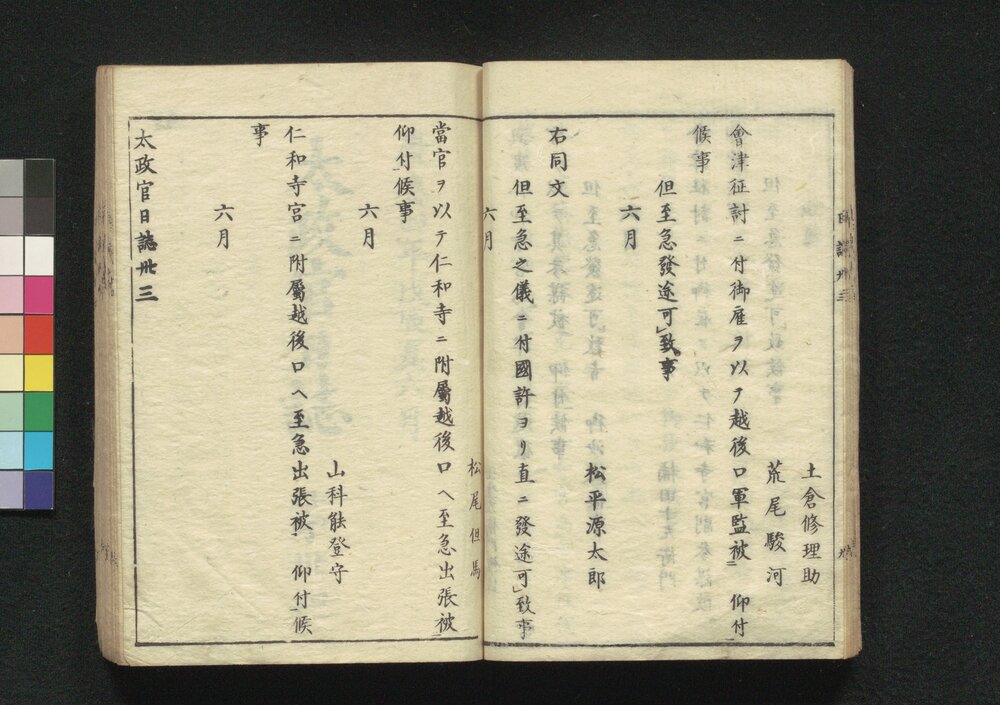 土倉修理助
荒尾駿河
會津征討ニ付御雇ヲ以テ越後口軍監被　仰付
候事
但至急發途可」致事
六月
松平源太郎
右同文
但至急之儀ニ付國許ヨリ直ニ發途可」致事
六月
松尾但馬
當官ヲ以テ仁和寺ニ附屬越後口ヘ至急出張被
仰付候事
六月
山科能登守
仁和寺宮ニ附屬越後口ヘ至急出張被　仰付候
事
六月
太政官日誌卅三